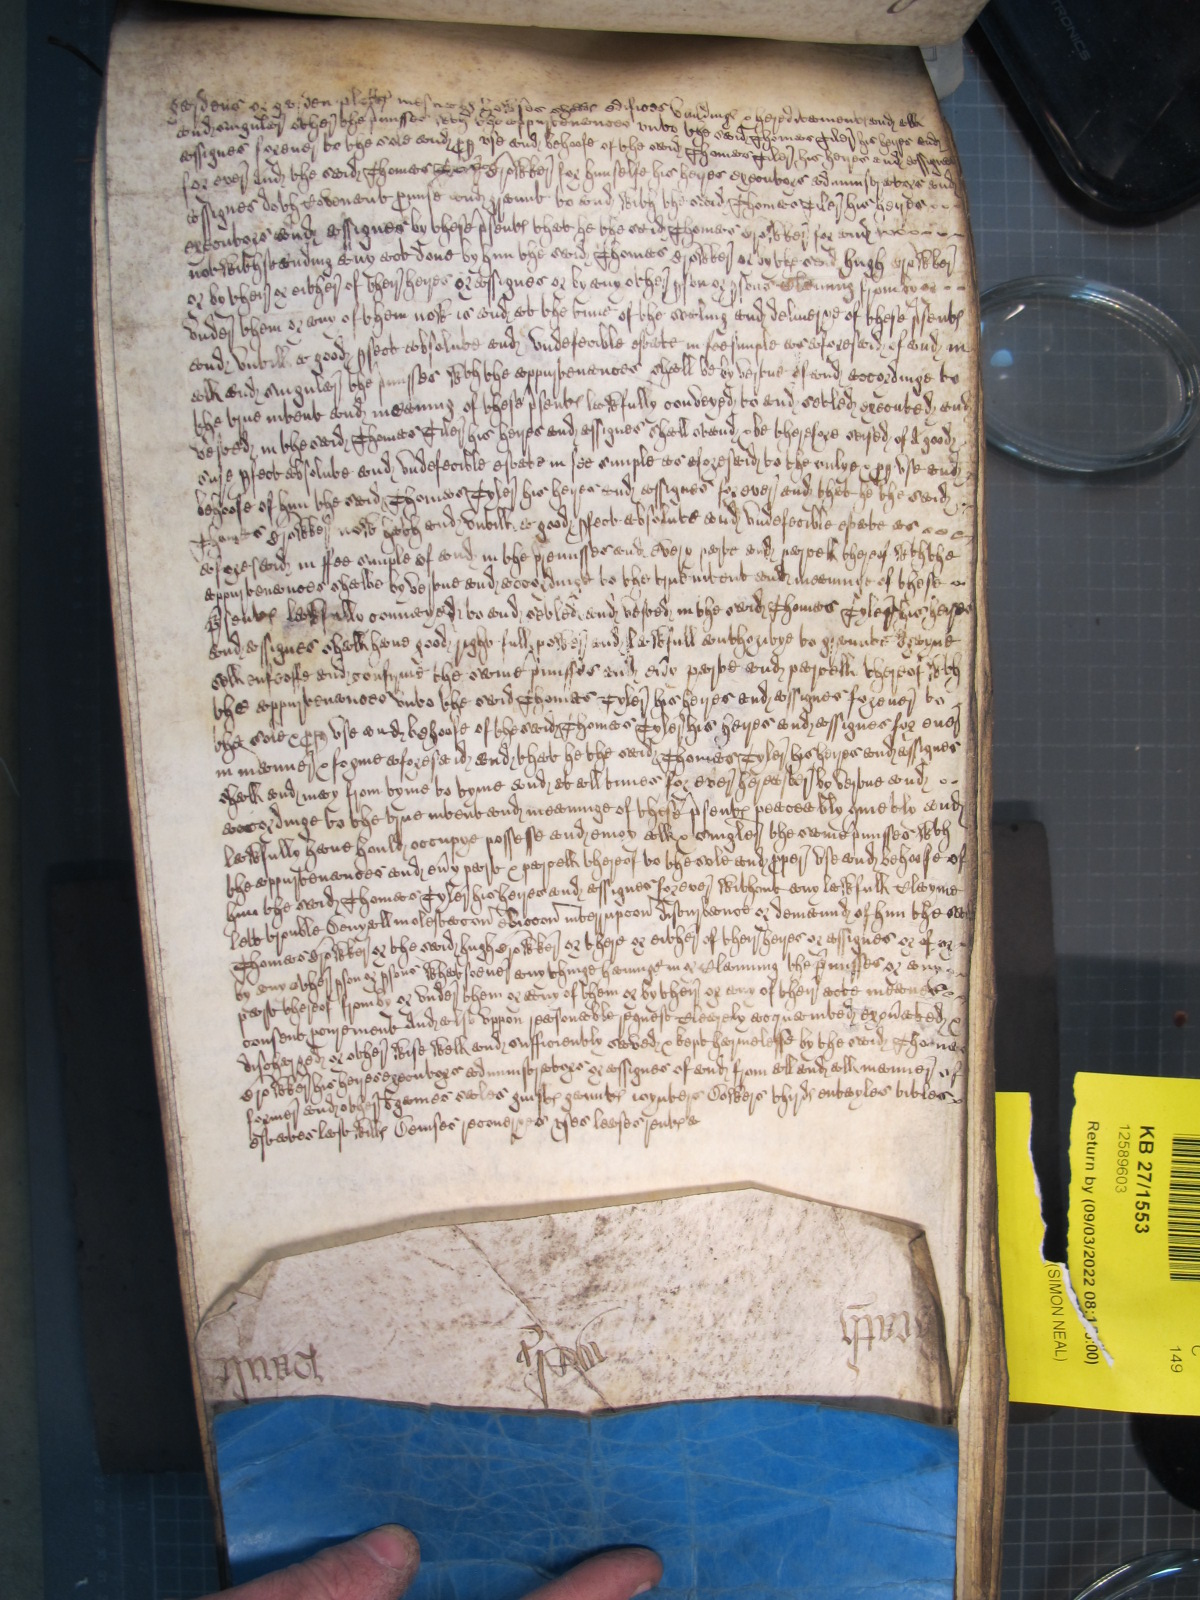 gardens or garden plottes mesuages houses edifices buildings & hereditaments and all
and singuler other the p'misses with thappurtenances unto the said Thomas Tyler his heyres and
assignes forever to the sole and pp use and behoofe of the said Thomas Tyler his heyres and assignes
for ever And the said Thomas Crokker for himselfe his heyres executors administrators and
assignes doth covenant p'mise and graunt to and with the said Thomas Tyler his heyres
executors and assignes by these p'sents that he the said Thomas Crokker for and
notwithstanding any act done by him the said Thomas Crokker or by the said hugh Crokker
or by their or either of their heyres or assignes or by any other p'son or p'sons clayming from by or
under them or any of them now is and at the time of the sealing and deliverye of these p'sents
and untill a good p'fect absolute and undefecible estate in fee simple as aforesaid of and in
all and singuler the p'misses with the appurtenances shall be by vertue of and accordinge to
the true intent and meaning of these p'sents lawfully conveyed to and setled executed and
vested in the said Thomas Tyler his heyres and assignes shall stand & be therefore seised of a good
sure p'fect absolute and undefecible estate in fee simple as aforesaid to the onlye & pp use and
behoofe of him the said Thomas Tyler his heyres and assignes for ever and that he the said
Thomas Crokker now hath and untill a good p'fect absolute and undefecible estate as
aforesaid in ffee simple of and in the premisses and every parte and parcell thereof with the
appurtenances shalbe by vertue and accordinge to the true intent and meaninge of these
p'sents lawfully conveyed to and setled and vested in the said Thomas Tyler his heyres
and assignes shall have good right full power and lawfull authoritye to graunte
sell enfeoffe and confirme the same p'misses and every parte and parcell thereof with
the appurtenances unto the said Thomas Tyler his heyres and assignes forever to
the sole & pp use and behoofe of the said Thomas Tyler his heyres and assignes for ever
in manner & forme aforesaid And that he the said Thomas Tyler his heyres and assignes
shall and may from tyme to tyme and at all times for ever hereafter by vertue and
accordinge to the true intent and meaninge of these p'sents peaceably quietly and
lawfully have hould occupye possesse and enioy all & singuler the same p'misses with
the appurtenances and every part & parcell thereof to the sole and pper use and behoofe of
him the said Thomas Tyler his heyres and assignes forever without any lawfull clayme
lett trouble denyall molestacon eviccon interrupcon disturbance or demaund of him the said
Thomas Crokker or the said hugh Crokker or these or either of their heyres or assignes or of or
by any other p'son or p'sons whatsoever any thinge havinge in or clayming the p'misses or any
part thereof from by or under them or any of them or by their or any of their acte meanes
consent p'curement And also uppon reasonable request clearely acquainted exon'ated &
discharged or other wise well and sufficiently saved & kept harmelesse by the said Thomas
Crokker his heyres executors administrators or assignes of and from all and all manner of
former and other bargaines sales guifts graunts ioyntures dowers thirds entayles titles
estates last wills demises recoveryes uses leases rents
KB 27/1553
12589603
Return by (09/03/2022 08:
(SIMON NEAL)
149